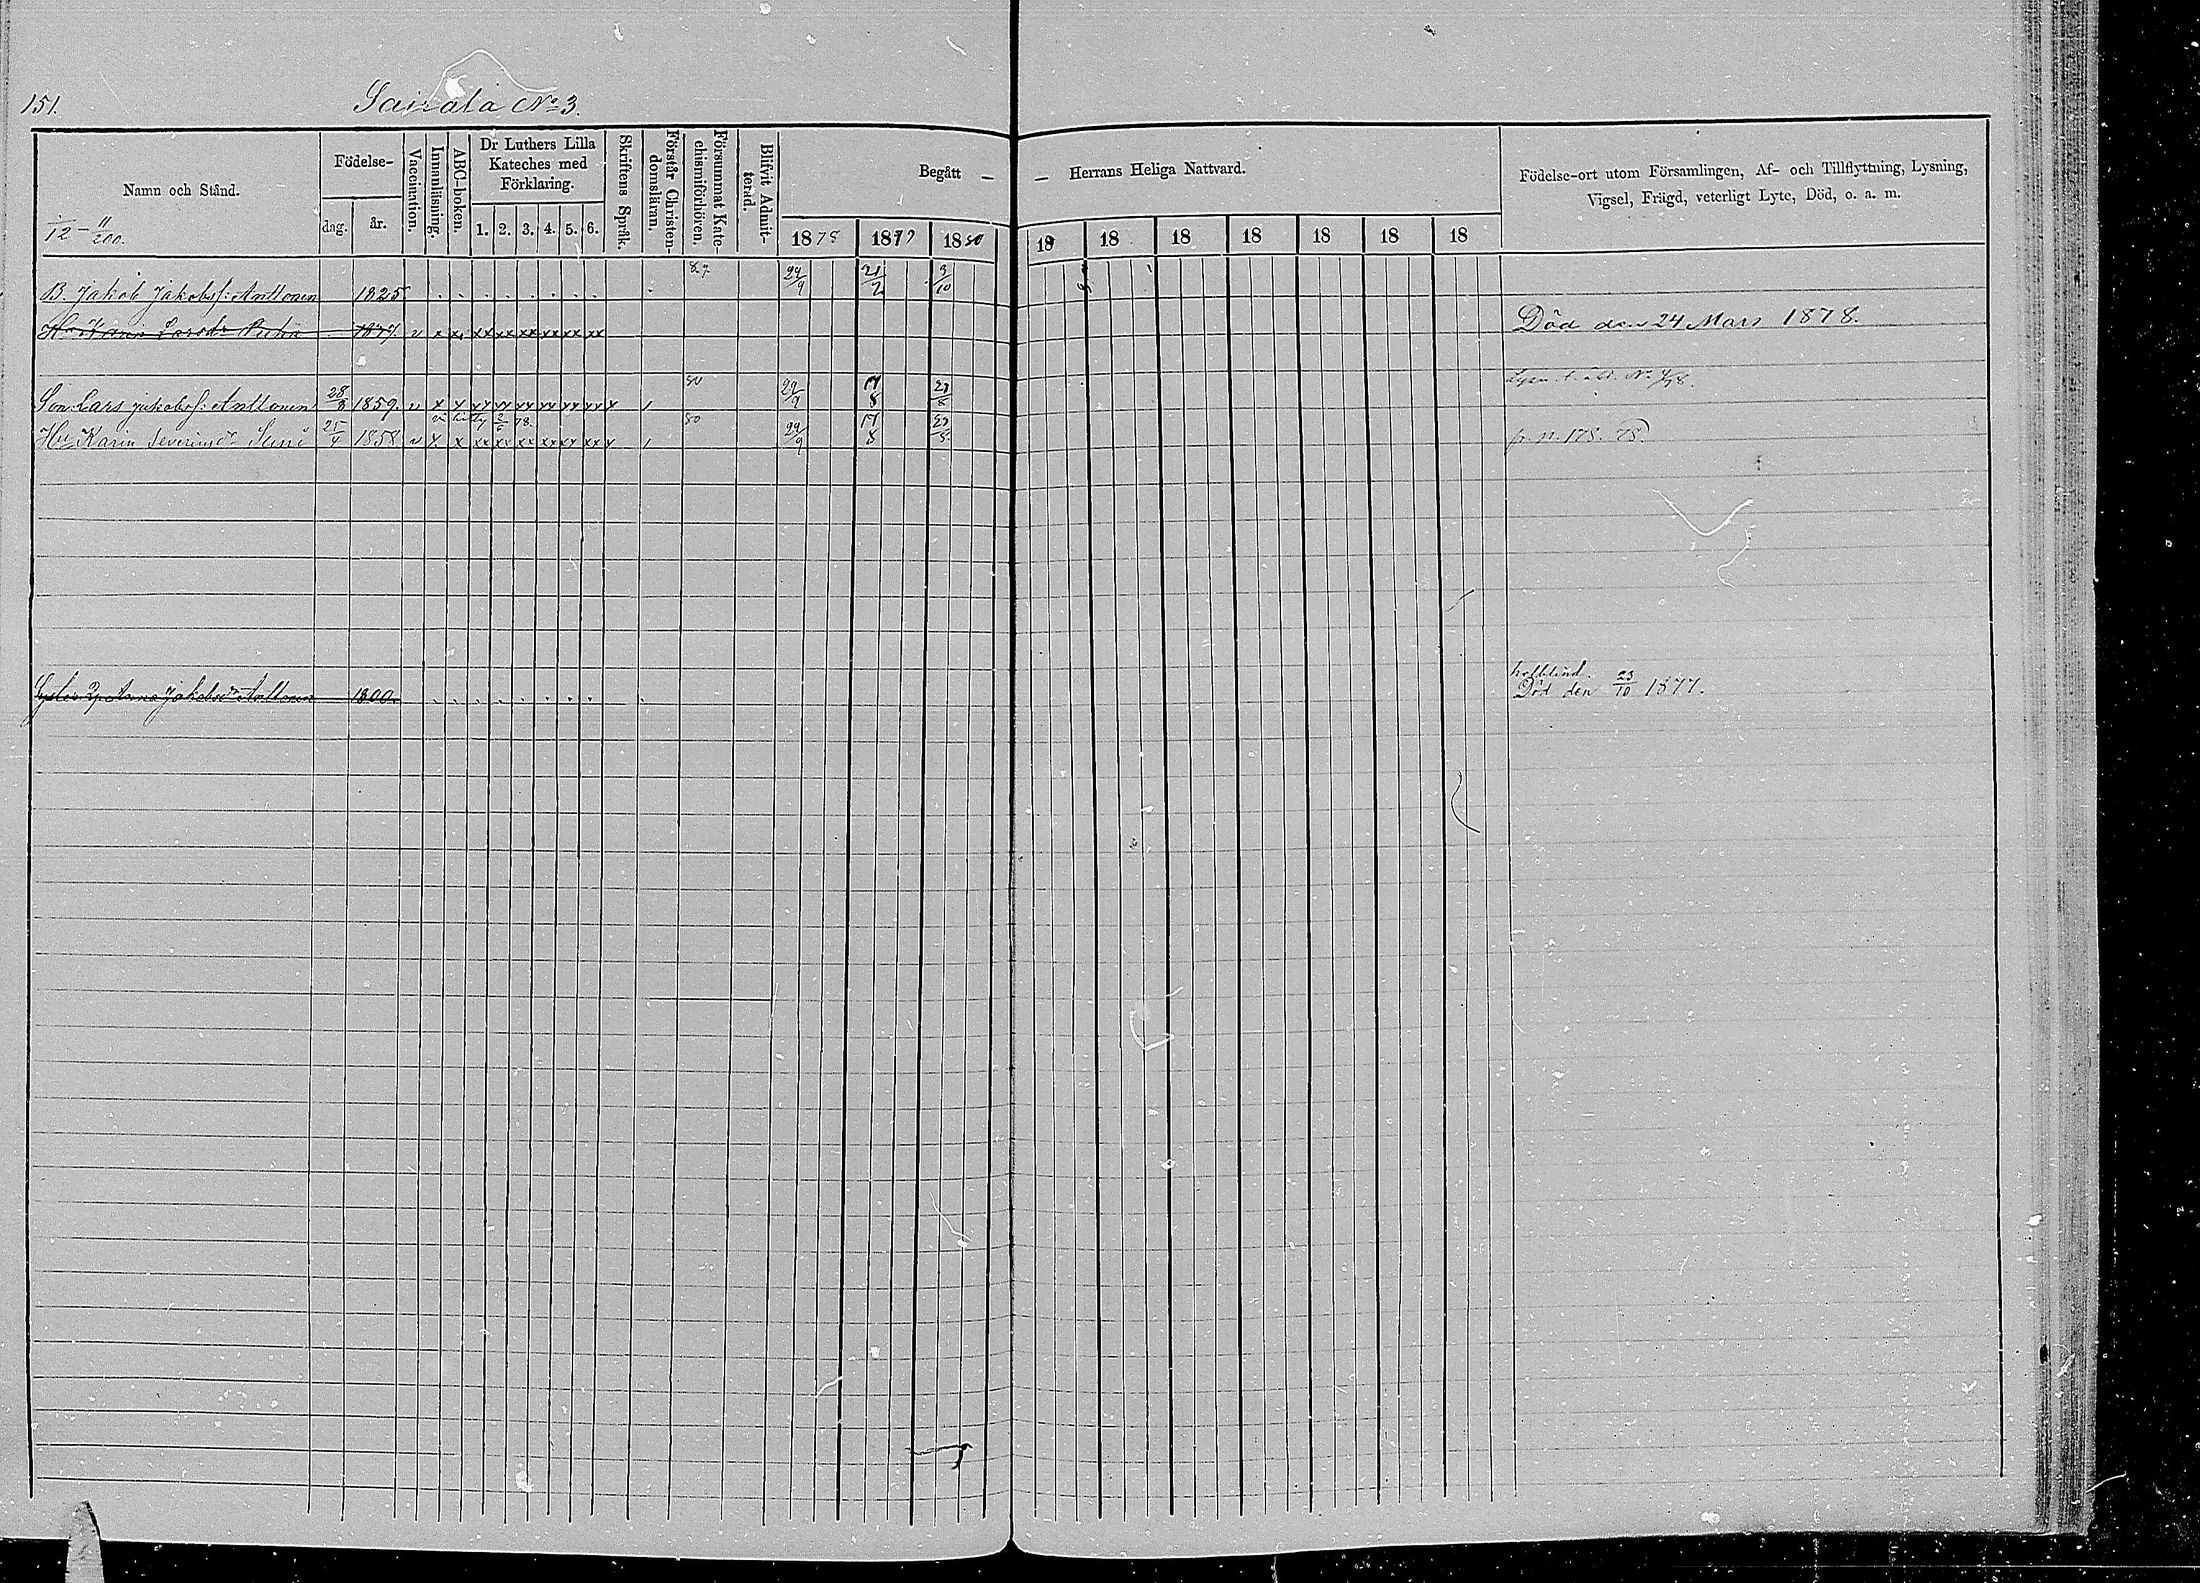 151. Sairala No 3.
Namn och Stånd.
Födelse-
dag. år.
Vaccination.
Innanläsning.
ABC-boken.
Dr Luthers Lilla
Kateches med
Förklaring.
1. 2. 3. 4. 5. 6.
Skriftens Språk.
Förstår Christen-
domsläran.
Försummat Kate-
chismiförhören.
Blifvit Admit-
terad.
Begått — — Herrans Heliga Nattvard.
1878 1879 1880 18 18 18 18 18 18 18
Födelse-ort utom Församlingen, Af- och Tillflyttning, Lysning,
Vigsel, Frägd, veterligt Lyte, Död, o. a. m.
B. Jakob Jakobss: Anttonen 1825 24/9 21/2 3/10
Karin Larsdr v x x xx xx xx xx xx xx Död den 24 Mars 1878.
80
Son: Lars Jakobss: Anttonen 28/8 1859. v x x xx xx xx xx xx xx x 29/9 17/8 29/8
Hu Karin Severinsdr Suni 25/4 1858 v x x xx xx xx xx xx xx x 80 29/9 17/8 fr. n. 178. 78.
halfblind.
Anna Jakobsdr Anttonen 1800. Död den 23/10 1877.